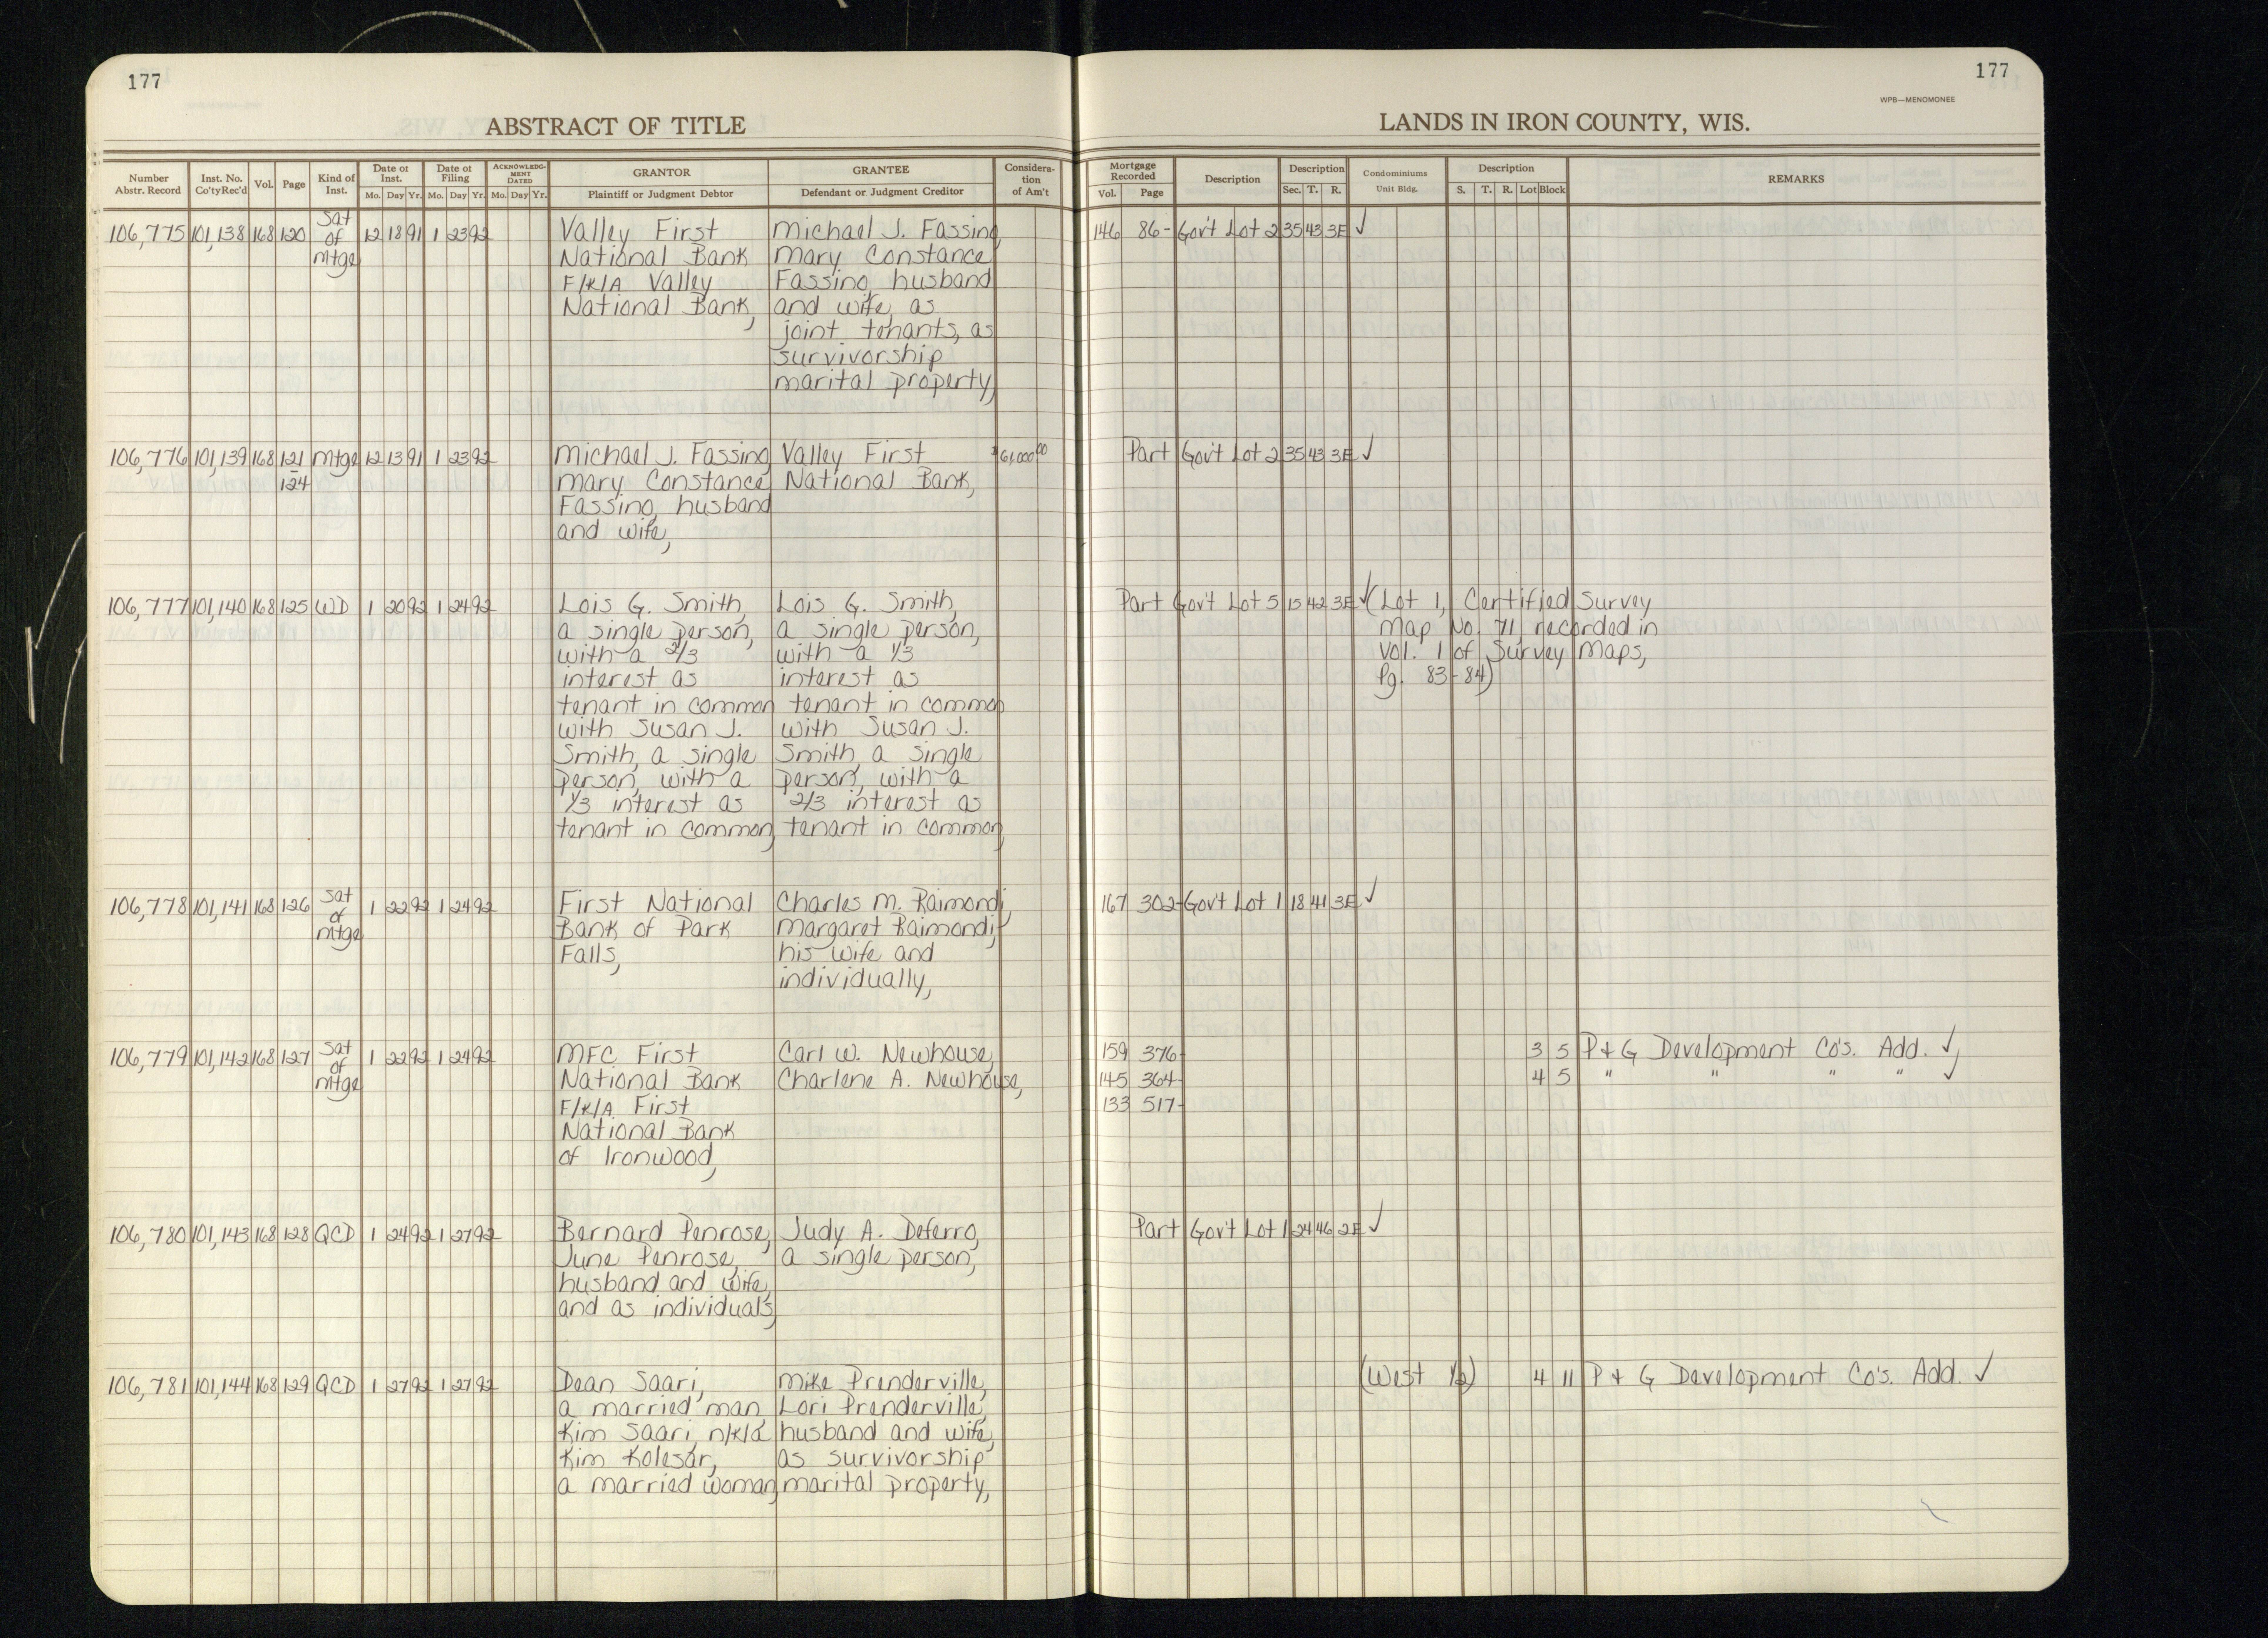 177
177
WPB—MENOMONEE
ABSTRACT OF TITLE
LANDS IN IRON COUNTY, WIS.
Number Abstr. Record | Inst. No. Co'ty Rec'd | Vol. | Page | Kind of Inst. | Date of Inst. Mo. Day Yr. | Date of Filing Mo. Day Yr. | ACKNOWLEDGMENT DATED Mo. Day Yr. | GRANTOR Plaintiff or Judgment Debtor | GRANTEE Defendant or Judgment Creditor | Consideration of Am't | Mortgage Recorded Vol. Page | Description | Description Sec. T. R. | Condominiums Unit Bldg. | Description S. T. R. Lot Block | REMARKS
106,775 101,138 168 120 Sat of Mtge 12 18 91 1 23 92 Valley First Michael J. Fassino 146 86- Gov't Lot 2 35 43 3E ✓
National Bank Mary Constance
F/K/A Valley Fassino, husband
National Bank, and wife, as
joint tenants, as
survivorship
marital property,
106,776 101,139 168 121 Mtge 12 13 91 1 23 92 Michael J. Fassino Valley First $61,000.00 Part Gov't Lot 2 35 43 3E ✓
124 Mary Constance National Bank,
Fassino, husband
and wife,
106,777 101,140 168 125 WD 1 20 92 1 24 92 Lois G. Smith, Lois G. Smith, Part Gov't Lot 5 15 42 3E ✓ (Lot 1, Certified Survey
a single person, a single person, Map No. 71, recorded in
with a 2/3 with a 1/3 Vol. 1 of Survey Maps,
interest as interest as Pg. 83-84)
tenant in common tenant in common
with Susan J. with Susan J.
Smith, a single Smith, a single
person, with a person, with a
1/3 interest as 2/3 interest as
tenant in common, tenant in common,
106,778 101,141 168 126 Sat of Mtge 1 22 92 1 24 92 First National Charles M. Raimondi, 167 302- Gov't Lot 1 18 41 3E ✓
Bank of Park Margaret Raimondi,
Falls, his wife and
individually,
106,779 101,142 168 127 Sat of Mtge 1 22 92 1 24 92 MFC First Carl W. Newhouse, 159 376- 3 5 P & G Development Co's. Add. ✓,
National Bank Charlene A. Newhouse, 145 364- 4 5 " " " " ✓
F/K/A First 133 517-
National Bank
of Ironwood,
106,780 101,143 168 128 QCD 1 24 92 1 27 92 Bernard Penrose, Judy A. Deferro, Part Gov't Lot 1 24 46 2E ✓
June Penrose, a single person,
husband and wife,
and as individuals,
106,781 101,144 168 129 QCD 1 27 92 1 27 92 Dean Saari, Mike Prenderville, (West 1/2) 4 11 P & G Development Co's. Add. ✓
a married man, Lori Prenderville,
Kim Saari, n/k/a husband and wife,
Kim Kolesar, as survivorship
a married woman, marital property,